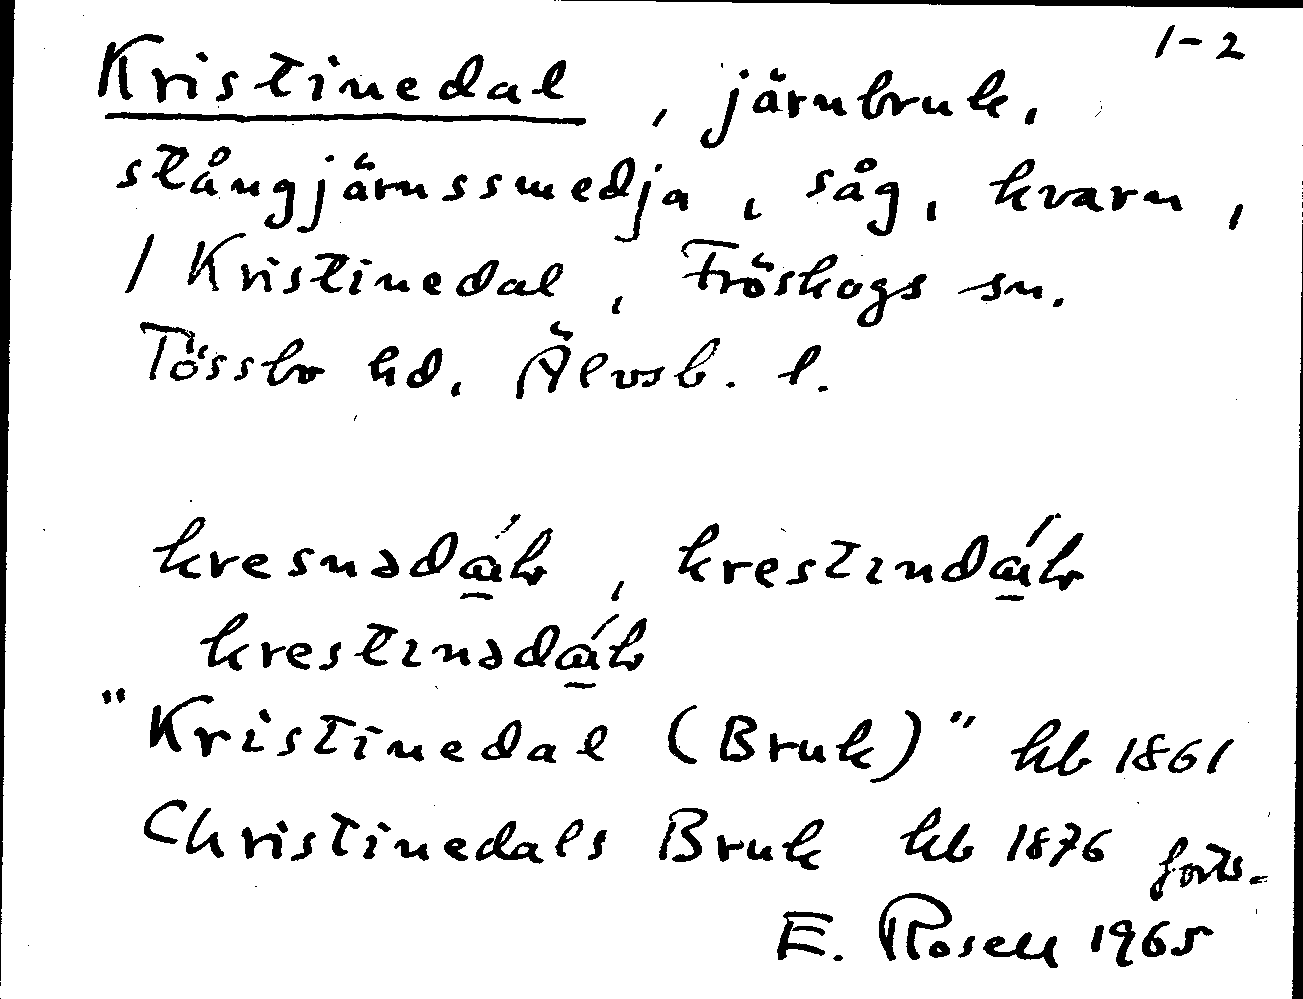 1-2
Kristinedal, järnbruk,
stångjärnssmedja, såg, kvarn,
/ Kristinedal, Fröskogs sn.
Tössbo hd, Älvsb. l.
kresnədáɫ, krestɪndáɫ
krestɪnədáɫ
"Kristinedal (Bruk)" hb 1861
Christinedals Bruk hb 1876 forts.
E. Rosell 1965